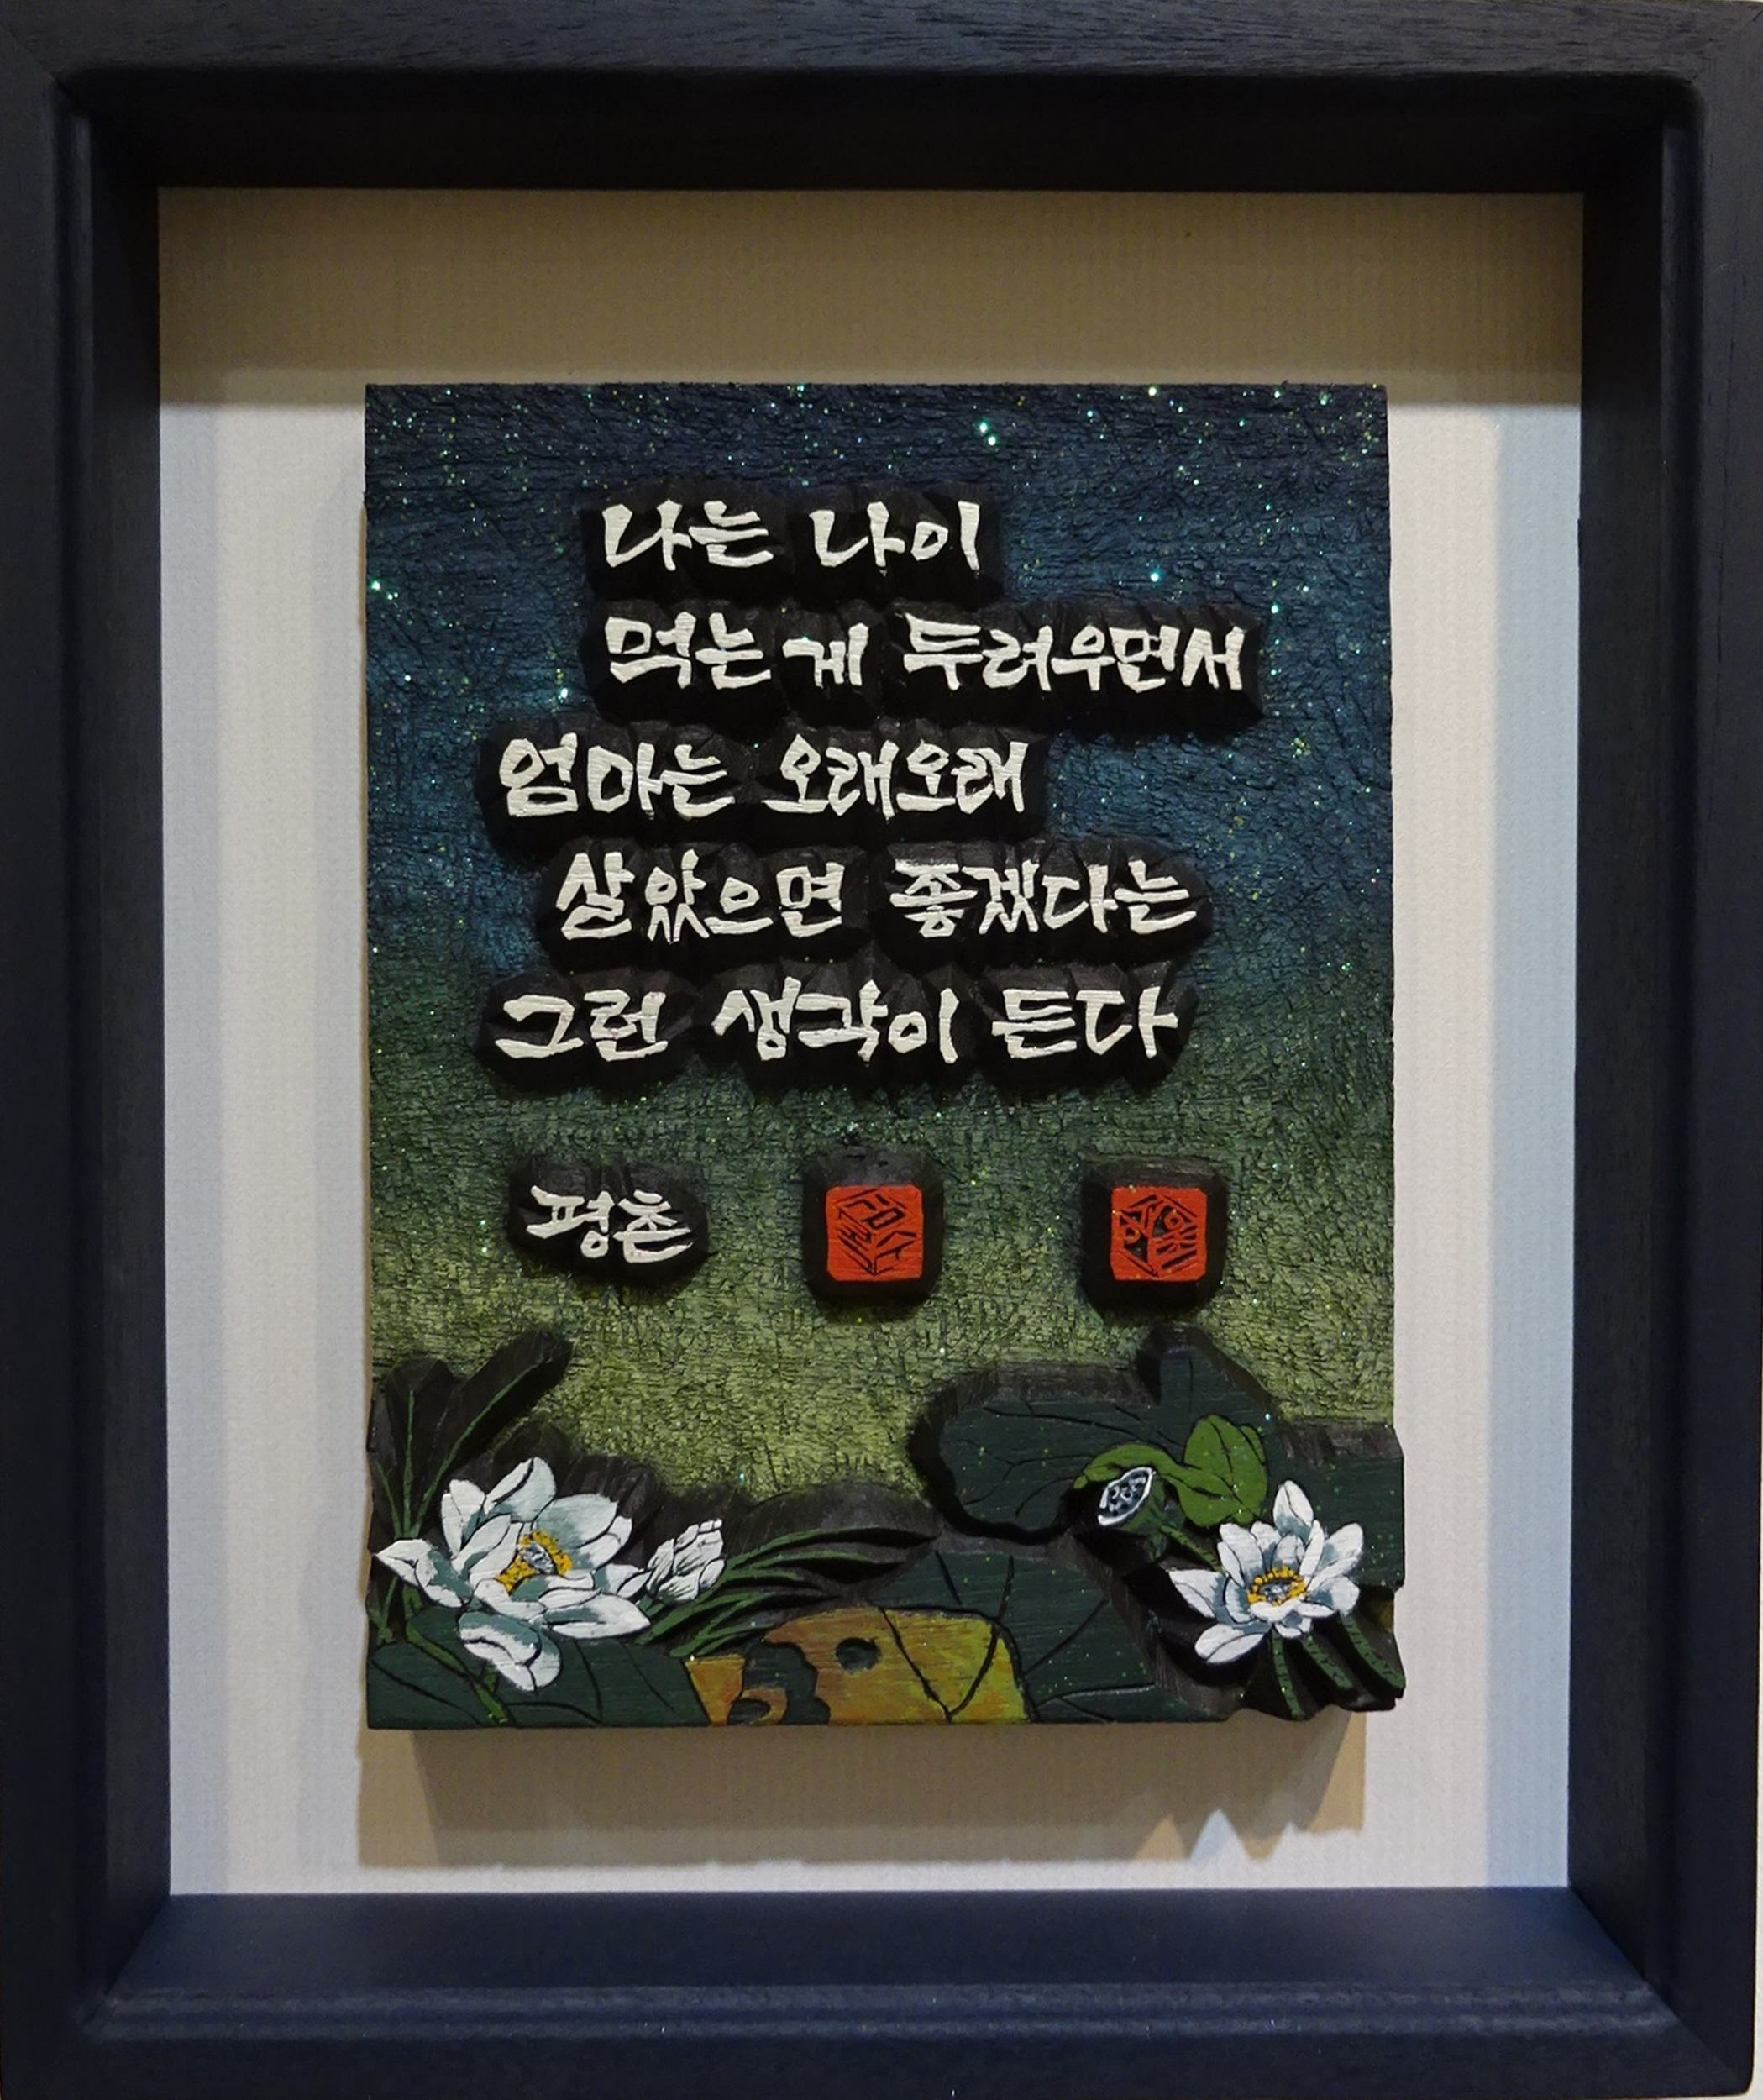 나는 나이
먹는 게 두려우면서
엄마는 오래오래
살았으면 좋겠다는
그런 생각이 든다
평촌